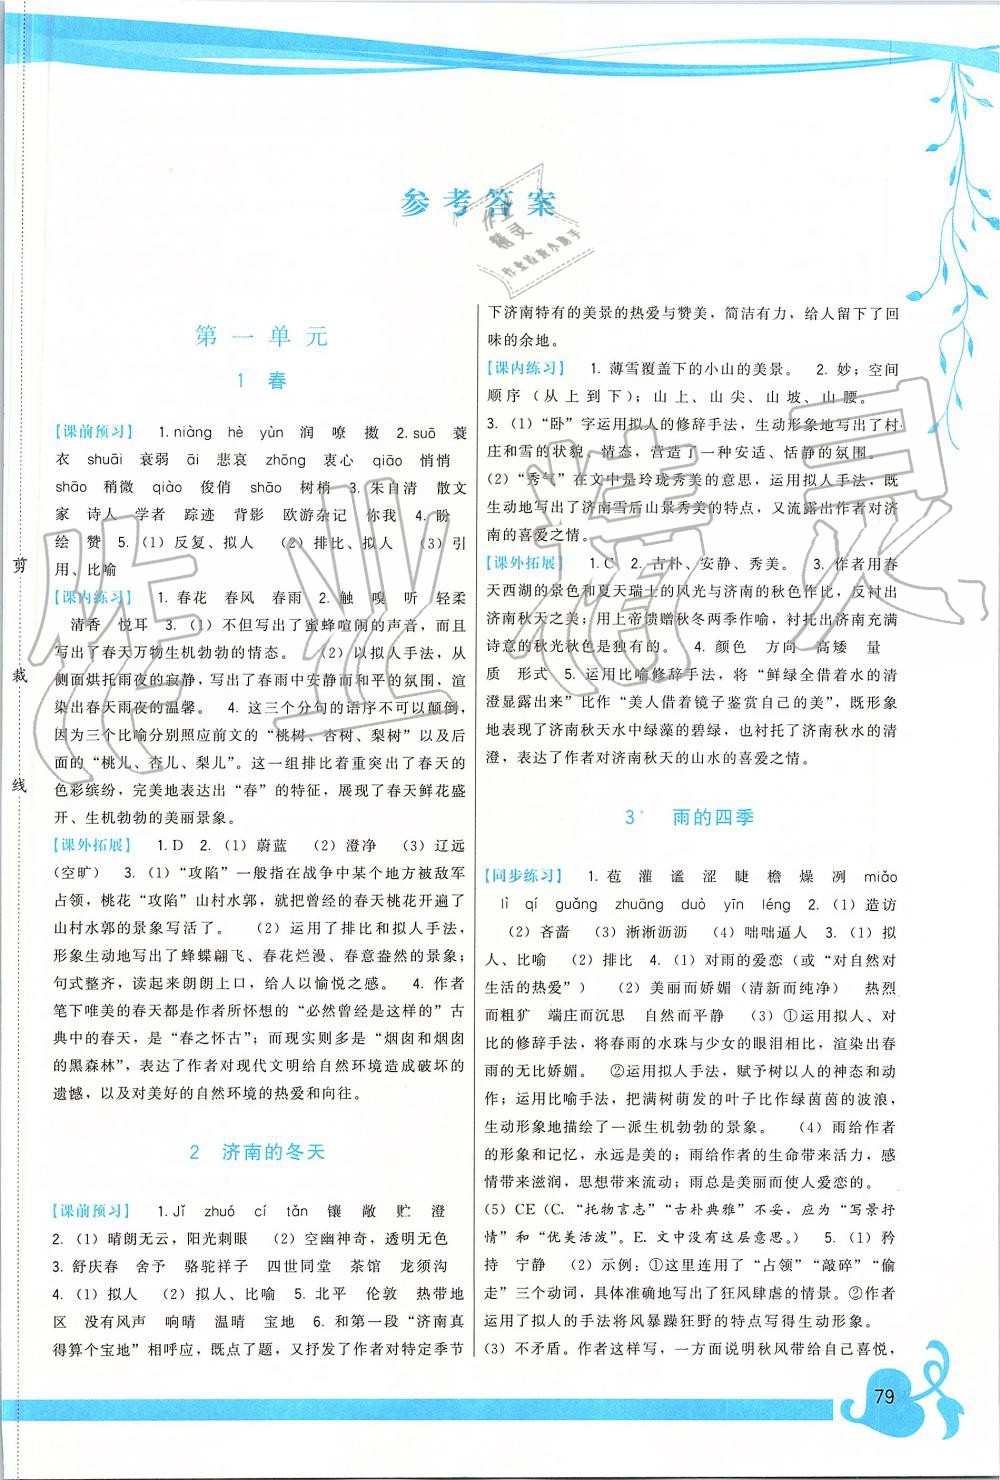 参考答案
第一单元
1 春
【课前预习】 1.niàng hè yùn 润 嘹 擞 2.suō 蓑
衣 shuāi 衰弱 āi 悲哀 zhōng 衷心 qiāo 悄悄
shāo 稍微 qiào 俊俏 shāo 树梢 3.朱自清 散文
家 诗人 学者 踪迹 背影 欧游杂记 你我 4.盼
绘 赞 5.(1)反复、拟人 (2)排比、拟人 (3)引
用、比喻
【课内练习】 1.春花 春风 春雨 2.触 嗅 听 轻柔
清香 悦耳 3.(1)不但写出了蜜蜂喧闹的声音,而且
写出了春天万物生机勃勃的情态。 (2)以拟人手法,从
侧面烘托雨夜的寂静,写出了春雨中安静而和平的氛围,渲
染出春天雨夜的温馨。 4.这三个分句的语序不可以颠倒,
因为三个比喻分别照应前文的“桃树、杏树、梨树”以及后
面的“桃儿、杏儿、梨儿”。这一组排比着重突出了春天的
色彩缤纷,完美地表达出“春”的特征,展现了春天鲜花盛
开、生机勃勃的美丽景象。
【课外拓展】 1.D 2.(1)蔚蓝 (2)澄净 (3)辽远
(空旷) 3.(1)“攻陷”一般指在战争中某个地方被敌军
占领,桃花“攻陷”山村水郭,就把曾经的春天桃花开遍了
山村水郭的景象写活了。 (2)运用了排比和拟人手法,
形象生动地写出了蜂蝶翩飞、春花烂漫、春意盎然的景象;
句式整齐,读起来朗朗上口,给人以愉悦之感。 4.作者
笔下唯美的春天都是作者所怀想的“必然曾经是这样的”古
典中的春天,是“春之怀古”;而现实则多是“烟囱和烟囱
的黑森林”,表达了作者对现代文明给自然环境造成破坏的
遗憾,以及对美好的自然环境的热爱和向往。
2 济南的冬天
【课前预习】 1.Jǐ zhuó cí tǎn 镶 敞 贮 澄
2.(1)晴朗无云,阳光刺眼 (2)空幽神奇,透明无色
3.舒庆春 舍予 骆驼祥子 四世同堂 茶馆 龙须沟
4.(1)拟人 (2)拟人、比喻 5.北平 伦敦 热带地
区 没有风声 响晴 温晴 宝地 6.和第一段“济南真
得算个宝地”相呼应,既点了题,又抒发了作者对特定季节
下济南特有的美景的热爱与赞美,简洁有力,给人留下了回
味的余地。
【课内练习】 1.薄雪覆盖下的小山的美景。 2.妙;空间
顺序(从上到下);山上、山尖、山坡、山腰。
3.(1)“卧”字运用拟人的修辞手法,生动形象地写出了村
庄和雪的状貌、情态,营造了一种安适、恬静的氛围。
(2)“秀气”在文中是玲珑秀美的意思,运用拟人手法,既
生动地写出了济南雪后山景秀美的特点,又流露出作者对济
南的喜爱之情。
【课外拓展】 1.C 2.古朴、安静、秀美。 3.作者用春
天西湖的景色和夏天瑞士的风光与济南的秋色作比,反衬出
济南秋天之美;用上帝馈赠秋冬两季作喻,衬托出济南充满
诗意的秋光秋色是独有的。 4.颜色 方向 高矮 量
质 形式 5.运用比喻修辞手法,将“鲜绿全借着水的清
澄显露出来”比作“美人借着镜子鉴赏自己的美”,既形象
地表现了济南秋天水中绿藻的碧绿,也衬托了济南秋水的清
澄,表达了作者对济南秋天的山水的喜爱之情。
3* 雨的四季
【同步练习】 1.苞 灌 谧 涩 睫 檐 燥 冽 miǎo
lì qí guǎng zhuāng duò yīn léng 2.(1)造访
(2)吝啬 (3)淅淅沥沥 (4)咄咄逼人 3.(1)拟
人、比喻 (2)排比 4.(1)对雨的爱恋(或“对自然对
生活的热爱”) (2)美丽而娇媚(清新而纯净) 热烈
而粗犷 端庄而沉思 自然而平静 (3)①运用拟人、对
比的修辞手法,将春雨的水珠与少女的眼泪相比,渲染出春
雨的无比娇媚。 ②运用拟人手法,赋予树以人的神态和动
作;运用比喻手法,把满树萌发的叶子比作绿茵茵的波浪,
生动形象地描绘了一派生机勃勃的景象。 (4)雨给作者
的形象和记忆,永远是美的;雨给作者的生命带来活力,感
情带来滋润,思想带来流动;雨总是美丽而使人爱恋的。
(5)CE(C.“托物言志”“古朴典雅”不妥,应为“写景抒
情”和“优美活泼”。E.文中没有这层意思。) 5.(1)矜
持 宁静 (2)示例:①这里连用了“占领”“敲碎”“偷
走”三个动词,具体准确地写出了狂风肆虐的情景。②作者
运用了拟人的手法将风暴躁狂野的特点写得生动形象。
(3)不矛盾。作者这样写,一方面说明秋风带给自己喜悦,
剪
裁
线
79
作业精灵
作业
精灵
作业检查小助手